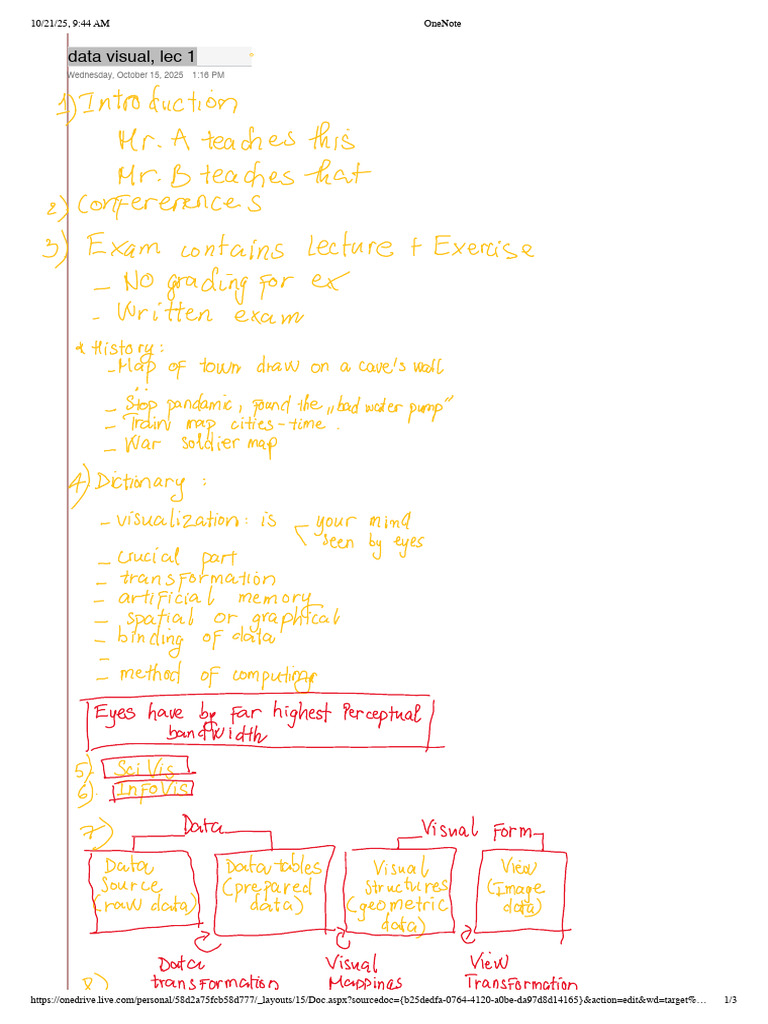 10/21/25, 9:44 AM OneNote
data visual, lec 1
Wednesday, October 15, 2025 1:16 PM
1) Introduction
Mr. A teaches this
Mr. B teaches that
2) Conferences
3) Exam contains Lecture + Exercise
- NO grading for ex
- Written exam
* History:
- Map of town draw on a cave's wall
- Stop pandamic, found the „bad water pump"
- Train map cities - time.
- War soldier map
4) Dictionary:
- visualization: is your mind
seen by eyes
- crucial part
- transformation
- artificial memory
- spatial or graphical
- binding of data
-
- method of computing
Eyes have by far highest Perceptual
bandwidth
5). SciVis
6). InfoVis
7) Data Visual Form
Data Source (raw data) Data tables (prepared data) Visual Structures (geometric data) View (Image data)
Data transformation Visual Mappings View Transformation
8)
https://onedrive.live.com/personal/58d2a75fcb58d777/_layouts/15/Doc.aspx?sourcedoc={b25dedfa-0764-4120-a0be-da97d8d14165}&action=edit&wd=target%… 1/3